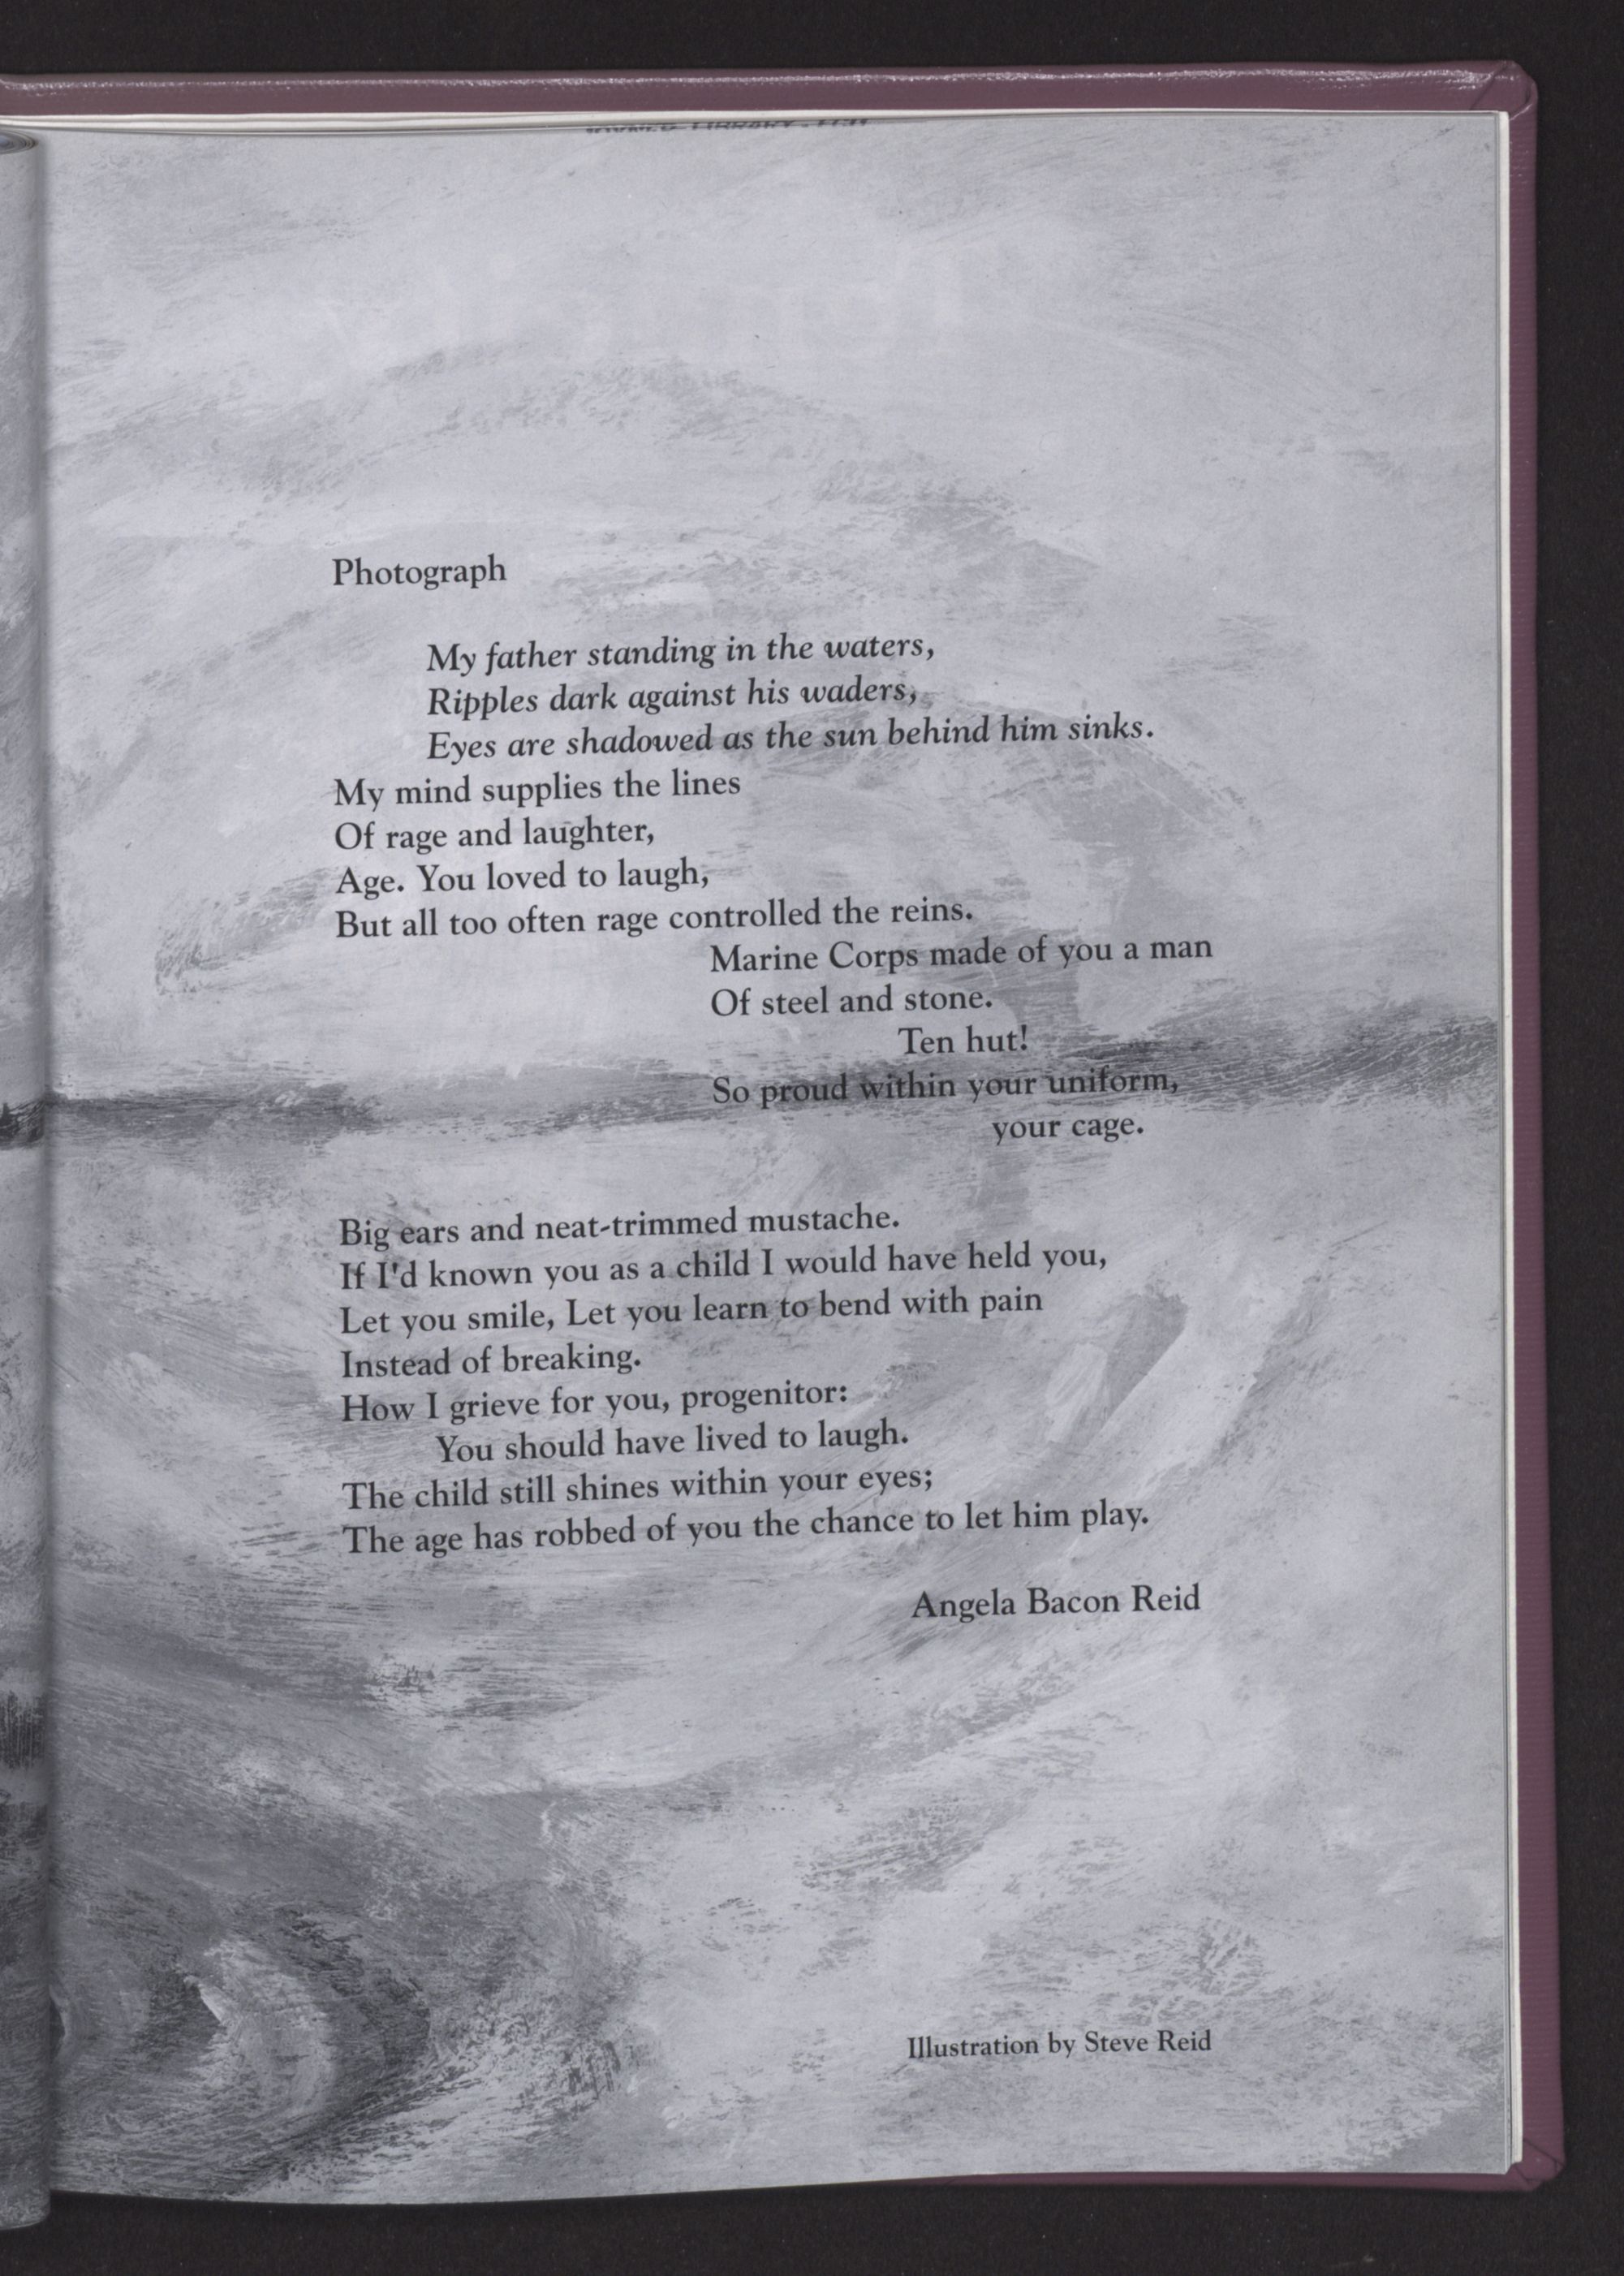 Photograph
My father standing in the waters,
Ripples dark against his waders,
Eyes are shadowed as the sun behind him sinks.
My mind supplies the lines
Of rage and laughter,
Age. You loved to laugh,
But all too often rage controlled the reins.
Marine Corps made of you a man
Of steel and stone.
Ten hut!
So proud within your uniform,
your cage.
Big ears and neat-trimmed mustache.
If I'd known you as a child I would have held you,
Let you smile, Let you learn to bend with pain
Instead of breaking.
How I grieve for you, progenitor:
You should have lived to laugh.
The child still shines within your eyes;
The age has robbed of you the chance to let him play.
Angela Bacon Reid
Illustration by Steve Reid